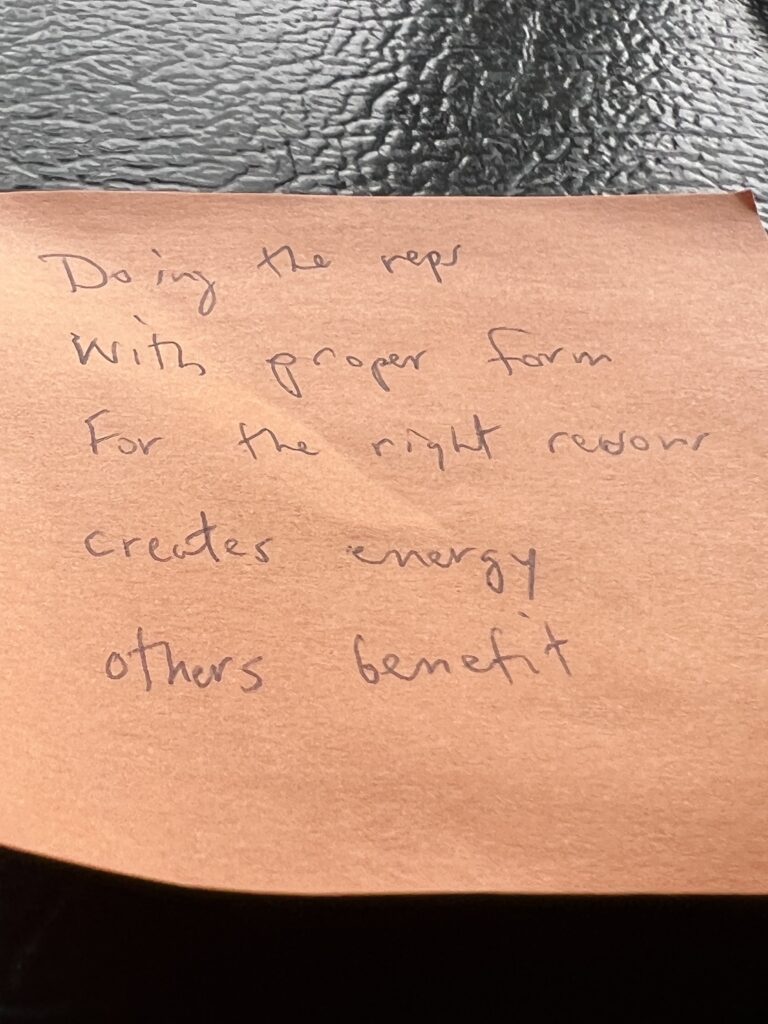 Doing the reps
With proper form
For the right reasons
creates energy
others benefit